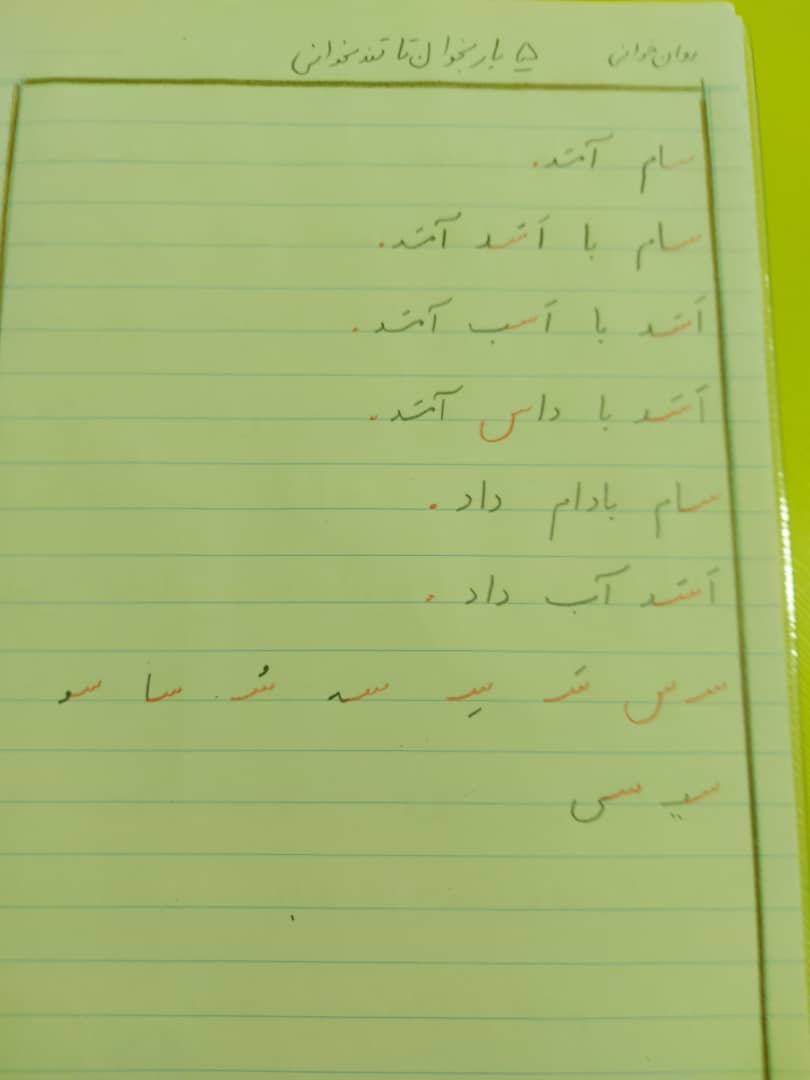 روان خوانی ۵ بار بخوان تا تند بخوانی
سام آمَد.
سام با اَسَد آمَد.
اَسَد با اَسب آمَد.
اَسَد با داس آمَد.
سام بادام داد.
اَسَد آب داد.
سـ س سَـ سِـ سه سُـ سا سو
سیـ سی